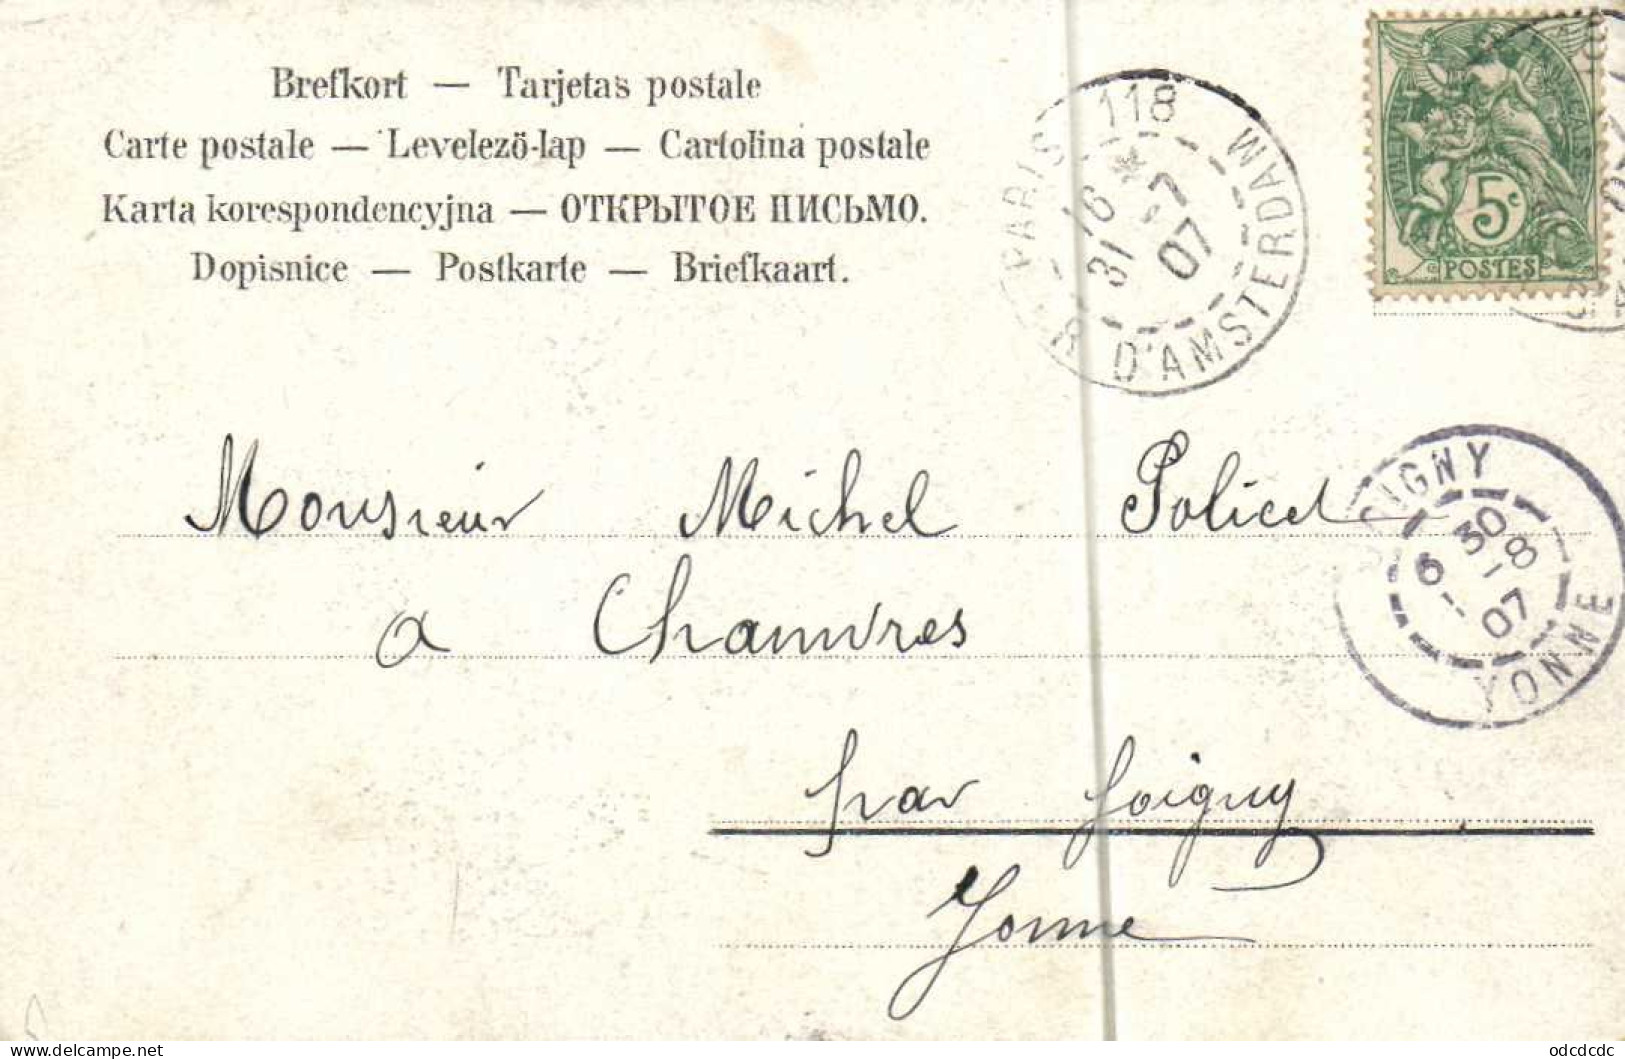 Brefkort — Tarjetas postale
Carte postale — Levelező-lap — Cartolina postale
Karta korespondencyjna — ОТКРЫТОЕ ПИСЬМО.
Dopisnice — Postkarte — Briefkaart.
PARIS 118
R. D'AMSTERDAM
16 *
31 -7
07
5c
POSTES
Monsieur Michel Policet
a Chamvres
par Joigny
Yonne
JOIGNY
YONNE
6 30-8
07
odcdcdc